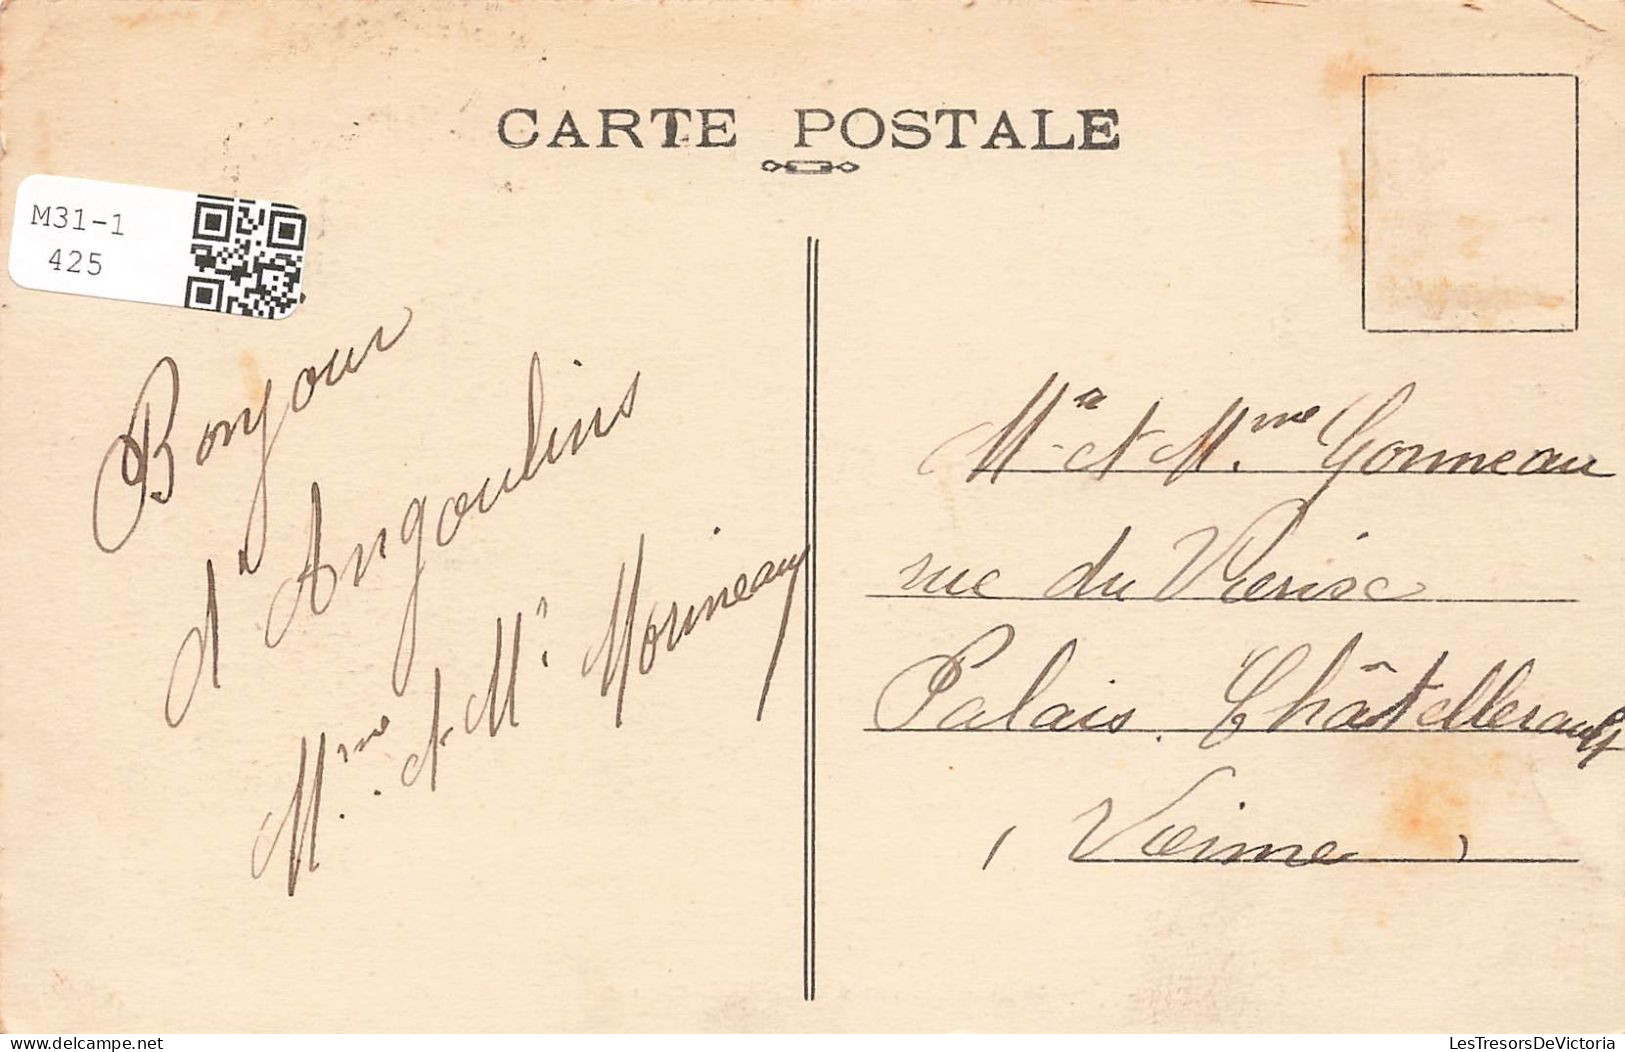 CARTE POSTALE
M31-1
425
Bonjour
d'Angoulins
Mme et Mr Morineau
Mr et Mme Gonneau
rue du Vieux
Palais. Châtellerault
(Vienne)
delcampe.net
LesTresorsDeVictoria